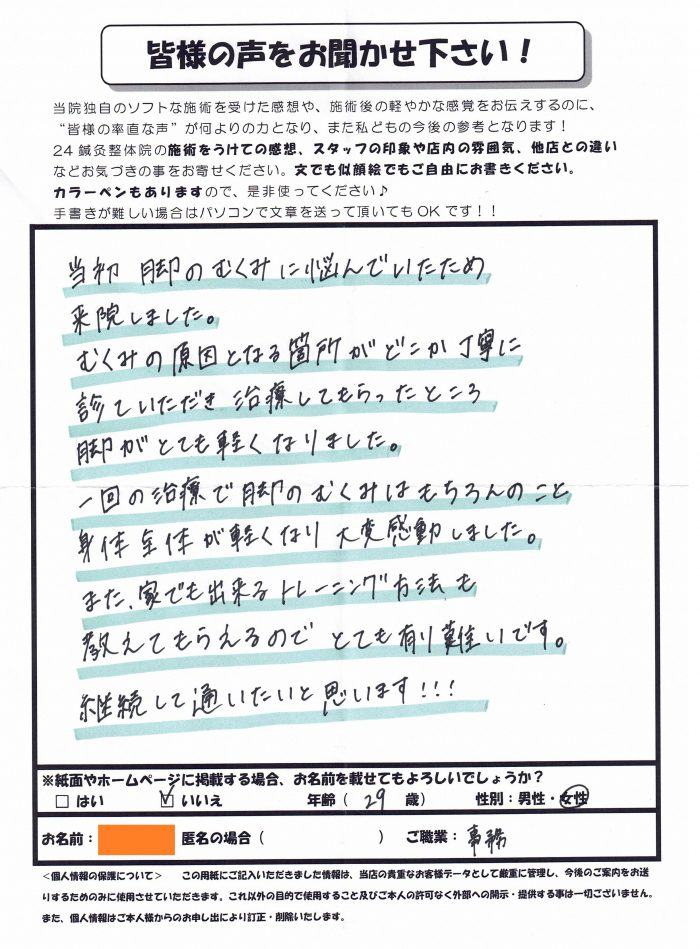 皆様の声をお聞かせ下さい！
当院独自のソフトな施術を受けた感想や、施術後の軽やかな感覚をお伝えするのに、
“皆様の率直な声”が何よりの力となり、また私どもの今後の参考となります！
24鍼灸整体院の施術をうけての感想、スタッフの印象や店内の雰囲気、他店との違い
などお気づきの事をお寄せください。文でも似顔絵でもご自由にお書きください。
カラーペンもありますので、是非使ってください♪
手書きが難しい場合はパソコンで文章を送って頂いてもOKです！！
当初 脚のむくみに悩んでいたため
来院しました。
むくみの原因となる箇所がどこか丁寧に
診ていただき 治療してもらったところ
脚がとても軽くなりました。
一回の治療で脚のむくみはもちろんのこと
身体全体が軽くなり 大変感動しました。
また、家でも出来るトレーニング方法も
教えてもらえるので とても有り難いです。
継続して通いたいと思います!!!
※紙面やホームページに掲載する場合、お名前を載せてもよろしいでしょうか？
□ はい ☑ いいえ 年齢（ 29 歳） 性別：男性・女性
お名前： 匿名の場合（ ） ご職業： 事務
＜個人情報の保護について＞ この用紙にご記入いただきました情報は、当店の貴重なお客様データとして厳重に管理し、今後のご案内をお送
りするためのみに使用させていただきます。これ以外の目的で使用すること及びご本人の許可なく外部への開示・提供する事は一切ございません。
また、個人情報はご本人様からのお申し出により訂正・削除いたします。